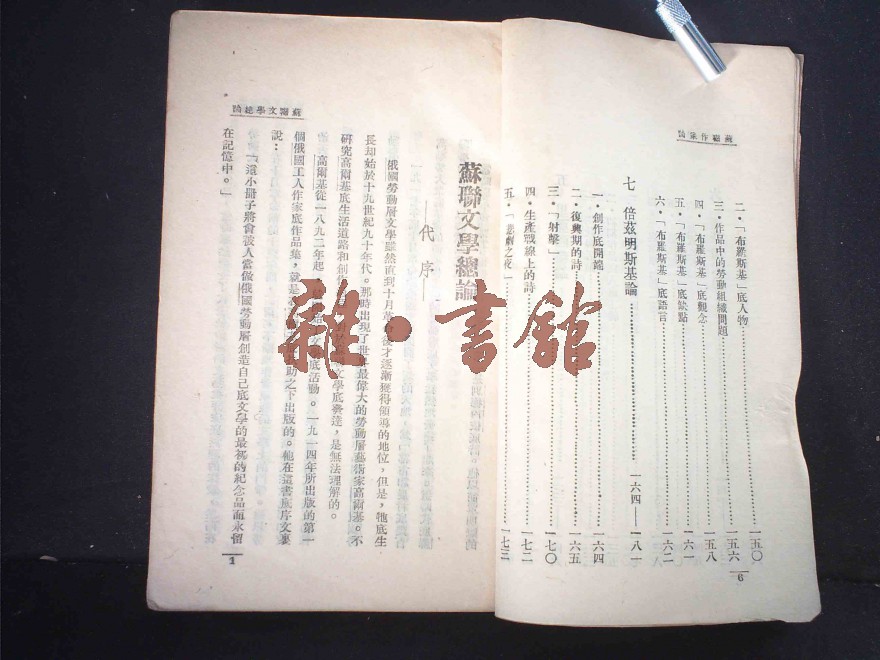 蘇聯作家論
二·「布羅斯基」底人物……一五〇
三·作品中的勞動組織問題……一五六
四·「布羅斯基」底觀念……一五八
五·「布羅斯基」底缺點……一六一
六·「布羅斯基」底語言……一六二
七 倍茲明斯基論……一六四—一八一
一·創作底開端……一六四
二·復興期的詩……一六五
三·「射擊」……一七〇
四·生產戰線上的詩……一七二
五·「悲劇之夜」……一七三
6
蘇聯文學總論
蘇聯文學總論
—代序—
俄國勞動層文學雖然直到十月革命後才逐漸獲得領導的地位，但是，牠底生
長却始於十九世紀九十年代。那時出現了世界最偉大的勞動層藝術家高爾基。不
研究高爾基底生活道路和創作 文學底發達，是無法理解的。
高爾基從一八九二年起， 底活動。一九一四年所出版的第一
個俄國工人作家底作品集，就是 助之下出版的。他在這書底序文裏
說：
「這小冊子將會被人當做俄國勞動層創造自己底文學的最初的紀念品而永留
在記憶中。」
1
雜·書館